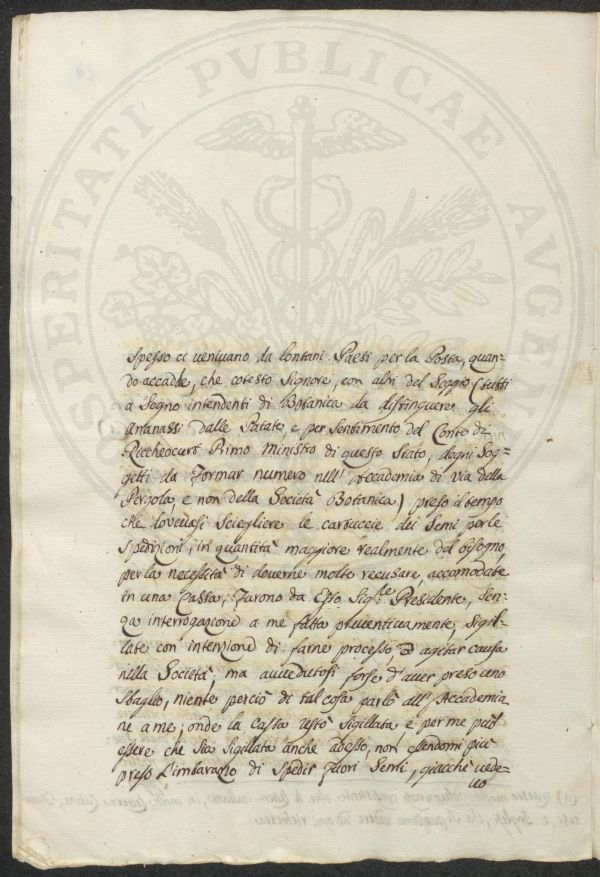 PROSPERITATI PVBLICAE AVGENDAE
spesso ci venivano da lontani Paesi per la Posta, quan-
do accadde, che cotesto Signore, con altri del Seggio (tutti
a Segno intendenti di Botanica da distinguere gli
Ananassi dalle Patate, e per sentimento del Conte di
Riccheocert Primo Ministro di questo Stato, degni Sog-
getti da Formar numero nell' Accademia di Via della
Pergola, e non della Società Botanica) preso il tempo
che dovevasi Sciegliere le cartuccie dei Semi per le
Spedizioni, in quantità maggiore realmente del bisogno,
per la necessità di doverne molte recusare, accomodate
in una Cassa, Furono da Esso Sig.re Presidente, sen-
za interrogazione a me fatta preventivamente, sigil-
late con intenzione di farne processo, ed agitar causa
nella Società; ma avvedutosi forse d'aver preso uno
Sbaglio, niente perciò di tal cosa parlò all' Accademia
ne a me; onde la Cassa restò sigillata e per me può
essere che sia sigillata anche adesso, non essendomi più
preso l'imbarazzo di Spedir Fuori Semi, giacchè vede-
vo